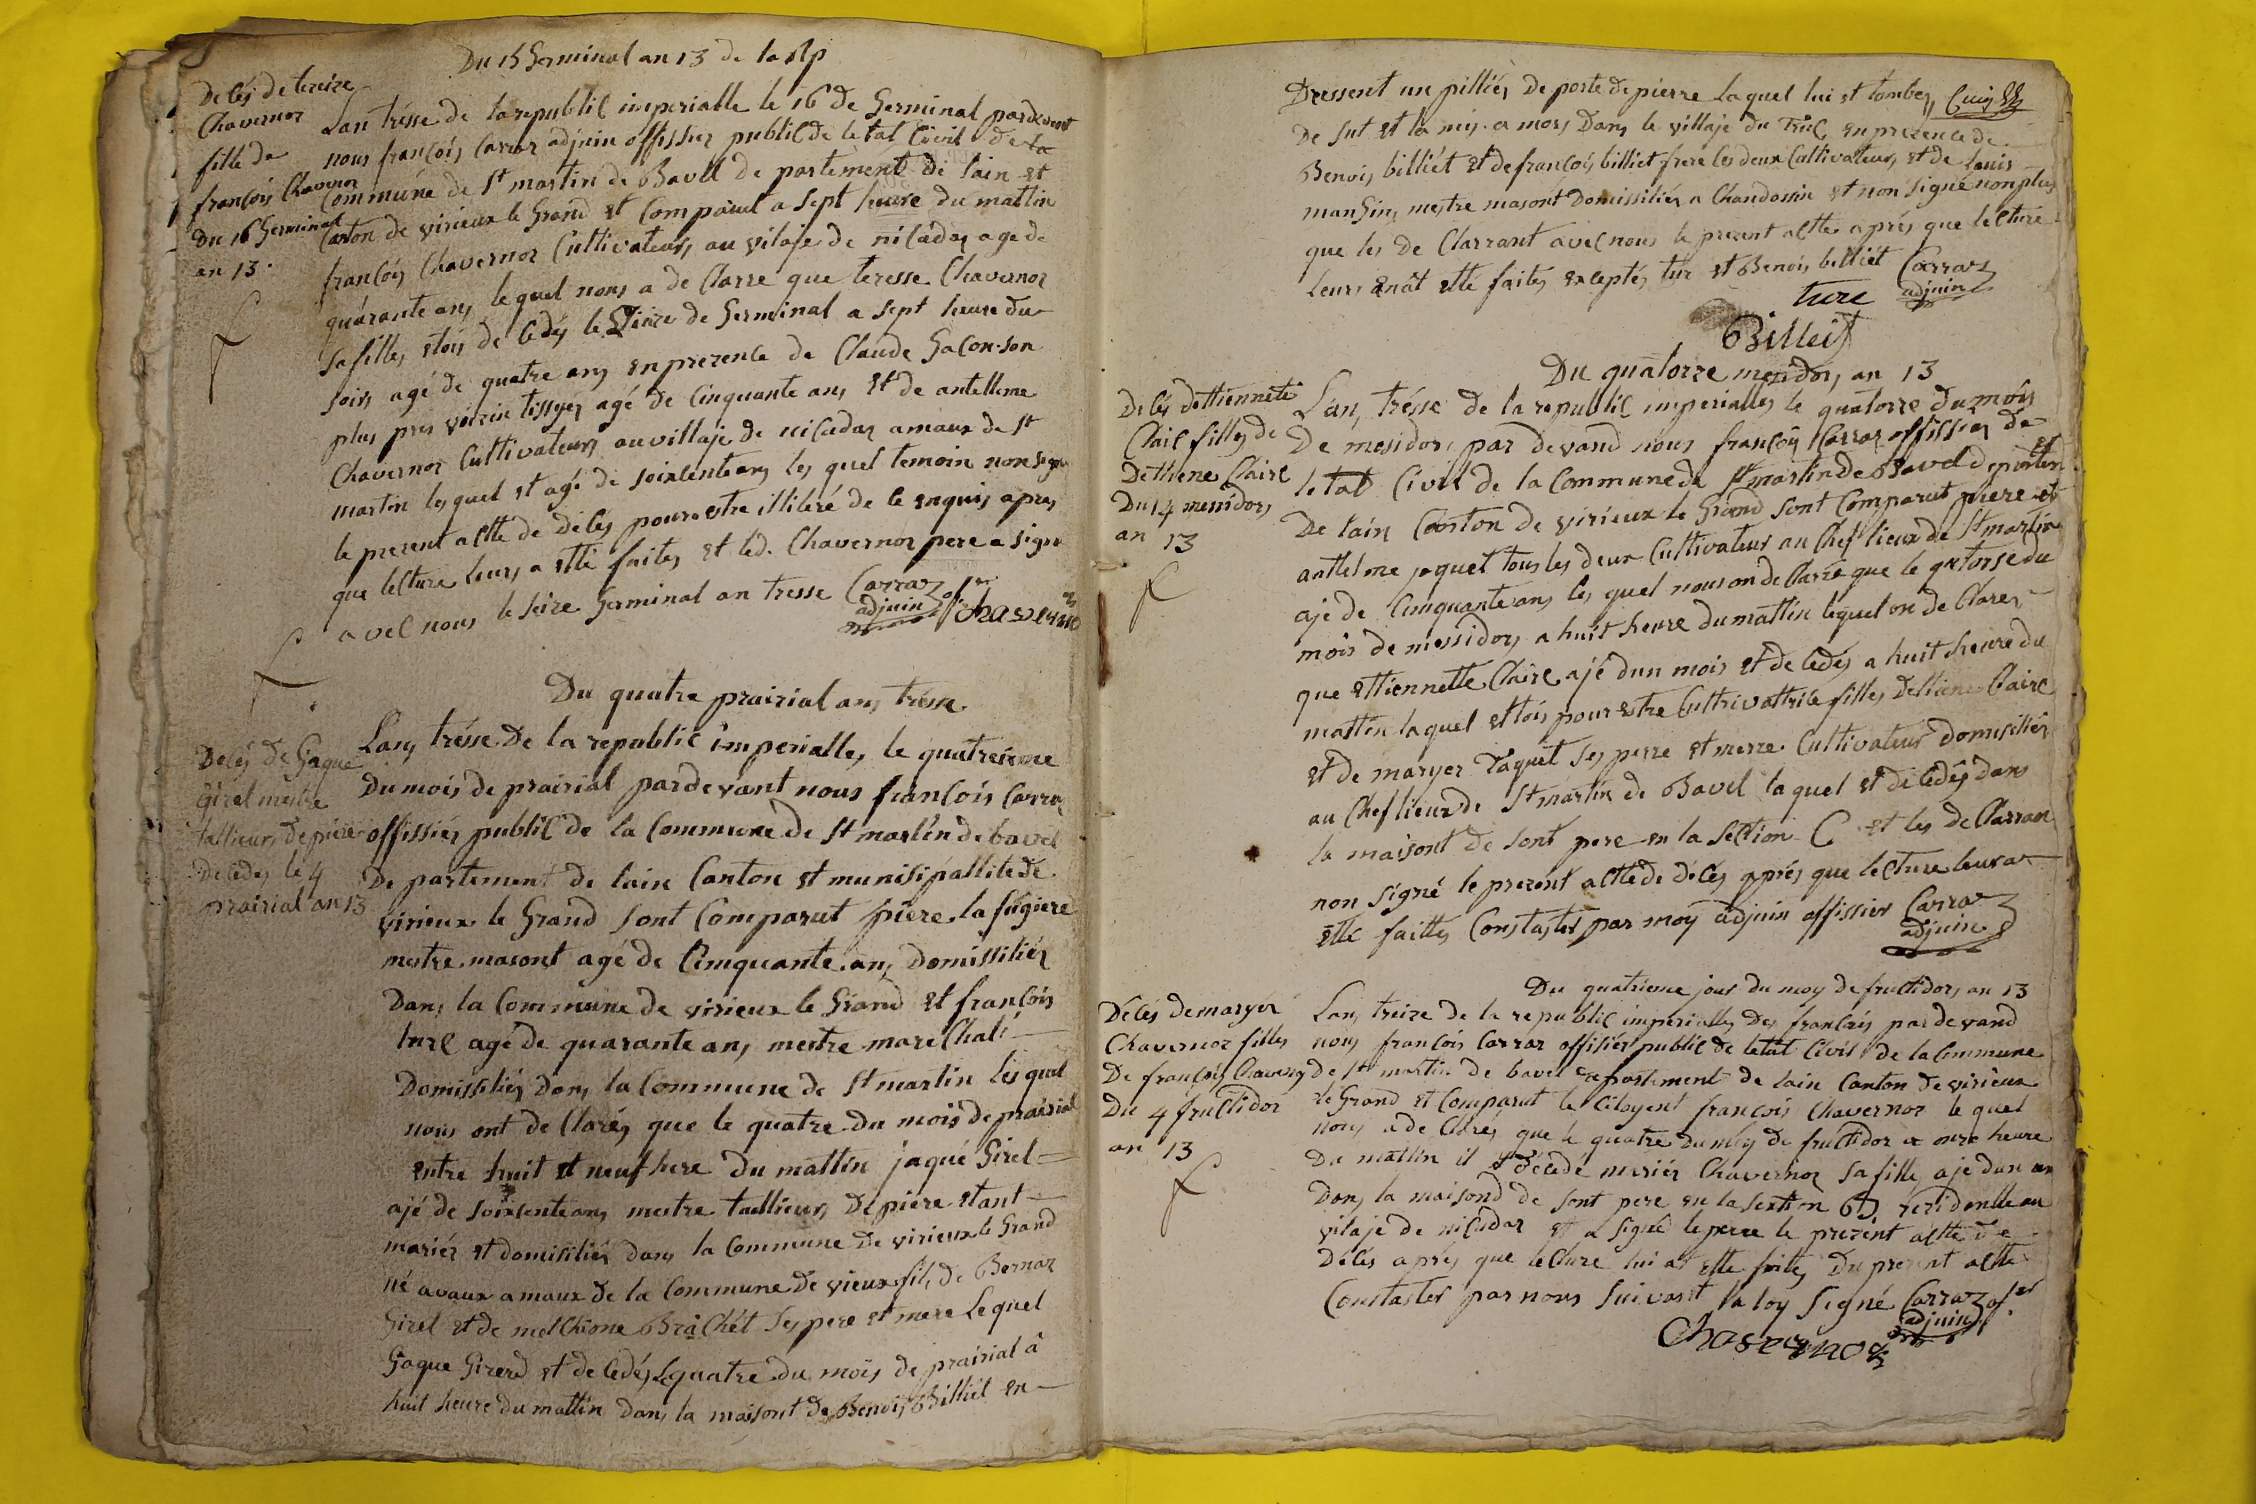 Du 15 Germinal an 13 de la Rp
Décés de tereize
Chavernoz
fille de
françois Chavernoz
Du 16 Germinal
an 13.
Lan trésse de la republic imperialle le 16 de Germinal pardevent
nous françois Carraz adjuin offissier public de le tat Civil de la
Commune de St martin de Bavel de partement de lain et
Canton de virieux le Grand et Comparut a sept heure du mattin
françois Chavernoz Cultivateurs au vilaje de nicudaz age de
quarante ans lequel nous a de Clarre que teresse Chavernoz
sa filles etois de cedés le Seize de Germinal a sept heure du
soirs agé de quatre ans en prezence de Claude Gacon son
plus pres voizin tissyer agé de Cinquante ans et de antellme
Chavernoz Cultivateurs au villaje de nicudaz amaux de St
martin lesquel et agé de soixente ans les quel temoin non signé
le prezent actte de déces pour estre illiteré de ce enquis apres
que lecture leurs a etté faites et led. Chavernoz pere a signé
avec nous le seize Germinal an tresse Carraz ofier
adjuin
Chavernoz
Du quatre prairial ans trésse
Decés de Gaque
Girel mestre
tallieurs de piere
decedes le 4
prairial an 13
Lans trésse De la republic imperialles le quatreieme
Du mois de prairial pardevant nous françois Carraz
offissiés public de la Commune de St martin de bavel
De partement de lain Canton et munisipallite de
virieux le Grand sont Comparut piere la fugiere
mestre masont agé de Cinquante ans Domissiliés
Dans la Commune de virieux le Grand et françois
ture agé de quarante ans mestre mareChal
Domissiliés Dans la Commune de St martin les quel
nous ont de Clarés que le quatre du mois de prairial
entre huit et neuf hure Du mattin jaque Girel
ajé de soixsente ans mestre taillieurs de piere etant
mariér et domisiliés dans la Commune de virieux le Grand
né avaux amaux de la Commune de vieux fils de Bernar
Girel et de melChione BraChet ses pere et mere Lequel
Gaque Girerd et de cedés Le quatre du mois de prairial a
huit heure du mattin dans la maisont de Benois Billiet en
Dressent un pilliés de porte de pierre Laquel lui et tombes
De sut et la mis a mors Dans le villaje du Truc en prezence de
Benois billiét et de françois billiet frere les deux Cultivateurs et de Louis
manGins mestre masont Domissiliés a Chandossin et non signé non plus
que les de Clarrant avec nous le prezent actte aprés que lecture
leurs anat etté faites exceptés ture et Benois billiet Carraz
adjuin
ture
Billiet
Du quatorze mesidors an 13
Décés dettiennete
Claic filles de
Dethiene Claire
Du 14 messidors
an 13
Lans trésse de la republic imperialles le quatorze du mois
De mesidors par devand nous françois Carraz offissies de
le tat Civil de la Commune de St martin de Bavel departem et
De lain Canton de virieux le Grand sont Comparut pierre et
anthelme jaquet tous les deux Cultivateur au Chef lieux de St martin
aje de Cinquante ans les quel nous on de Clarré que le quatorse du
mois de messidors a huit heure du mattin lequel on de Clares
que ettiennette Claire ajé dun mois et de cedés a huit heure du
mattin laquel ettois pour estre Culttivattrice filles dettiene Claire
et de maryer Jaquet ses perre et merre Cultivateur domisiliés
au Chef lieux de St martin de Bavel laquel et de cedés dans
la maisont de sont pere en la section C et les de Clarran
non signé le prezent actte de décés aprés que lecture leur a
etté faittes Constaster par moy adjuin offissier Carraz
adjuin
Du quatrieme jour du moy de fructidors an 13
Décés de maryer
Chavernoz filles
De françois Chavernoz
Du 4 fructidor
an 13
Lans treize de la republic imperialles Des francais par devand
nous françois Carraz offisiér public de letat Civil de la Commune
De St martin de bavel departement de lain Canton de virieux
le Grand et Comparut le Citoyent françois Chavernoz le quel
nous a de Clarés que le quatre du moy de fructidor a onze heure
Du mattin il et décédé meriér Chavernoz sa fille aje dun an
Dans la maisond de sont pere en la section B rezidentte au
vilaje de nicudaz et a signé le perre le prezent actte de
Décés aprés que lecture lui at etté faites Du prezent actte
Constaster par nous suivant la loy Signé Carraz ofier
adjuin
Chavernoz